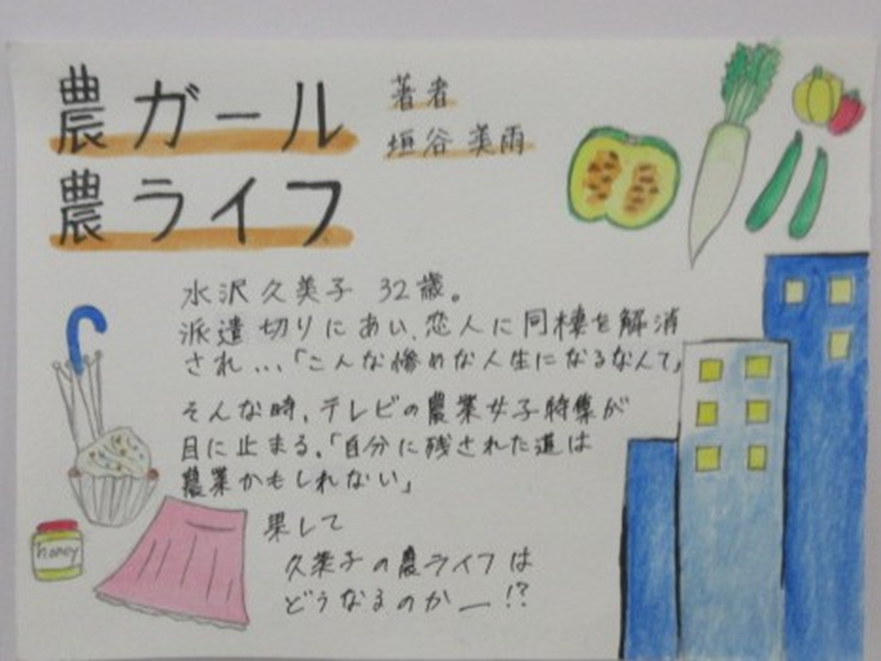 農ガール
農ライフ
著者
垣谷 美雨
水沢久美子 32歳。
派遣切りにあい、恋人に同棲を解消
され...「こんな惨めな人生になるなんて」
そんな時、テレビの農業女子特集が
目に止まる。「自分に残された道は
農業かもしれない」
果して
久美子の農ライフは
どうなるのか―!?
honey